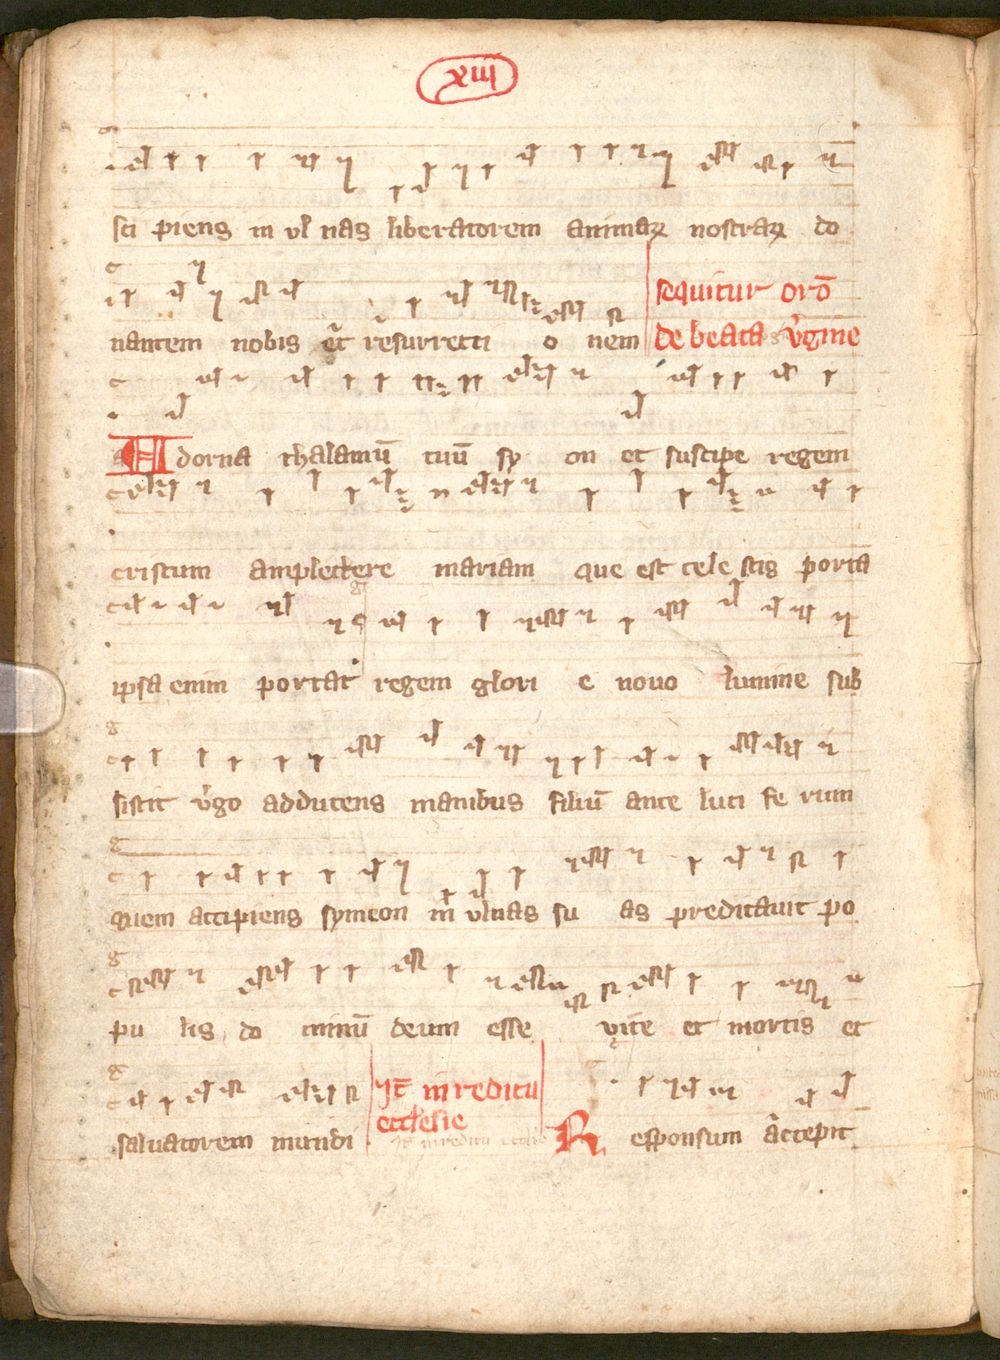 xiii
sci piens in vl nas liberatorem animaꝝ nostraꝝ do
nantem nobis et resurrecti o nem sequitur orō
de beata v'gine
Adorna thalamū tuū sy on et suscipe regem
cristum amplectere mariam que est cele stis porta
ipsa enim portat regem glori e nouo lumine sub
sistit v'go adducens manibus filiū ante luci fe rum
quem accipiens symeon in vlnas su as predicauit po
pu lis do minū deum esse vite et mortis et
saluatorem mundi Jt̄ in reditu
ecclesie
Responsum accepit